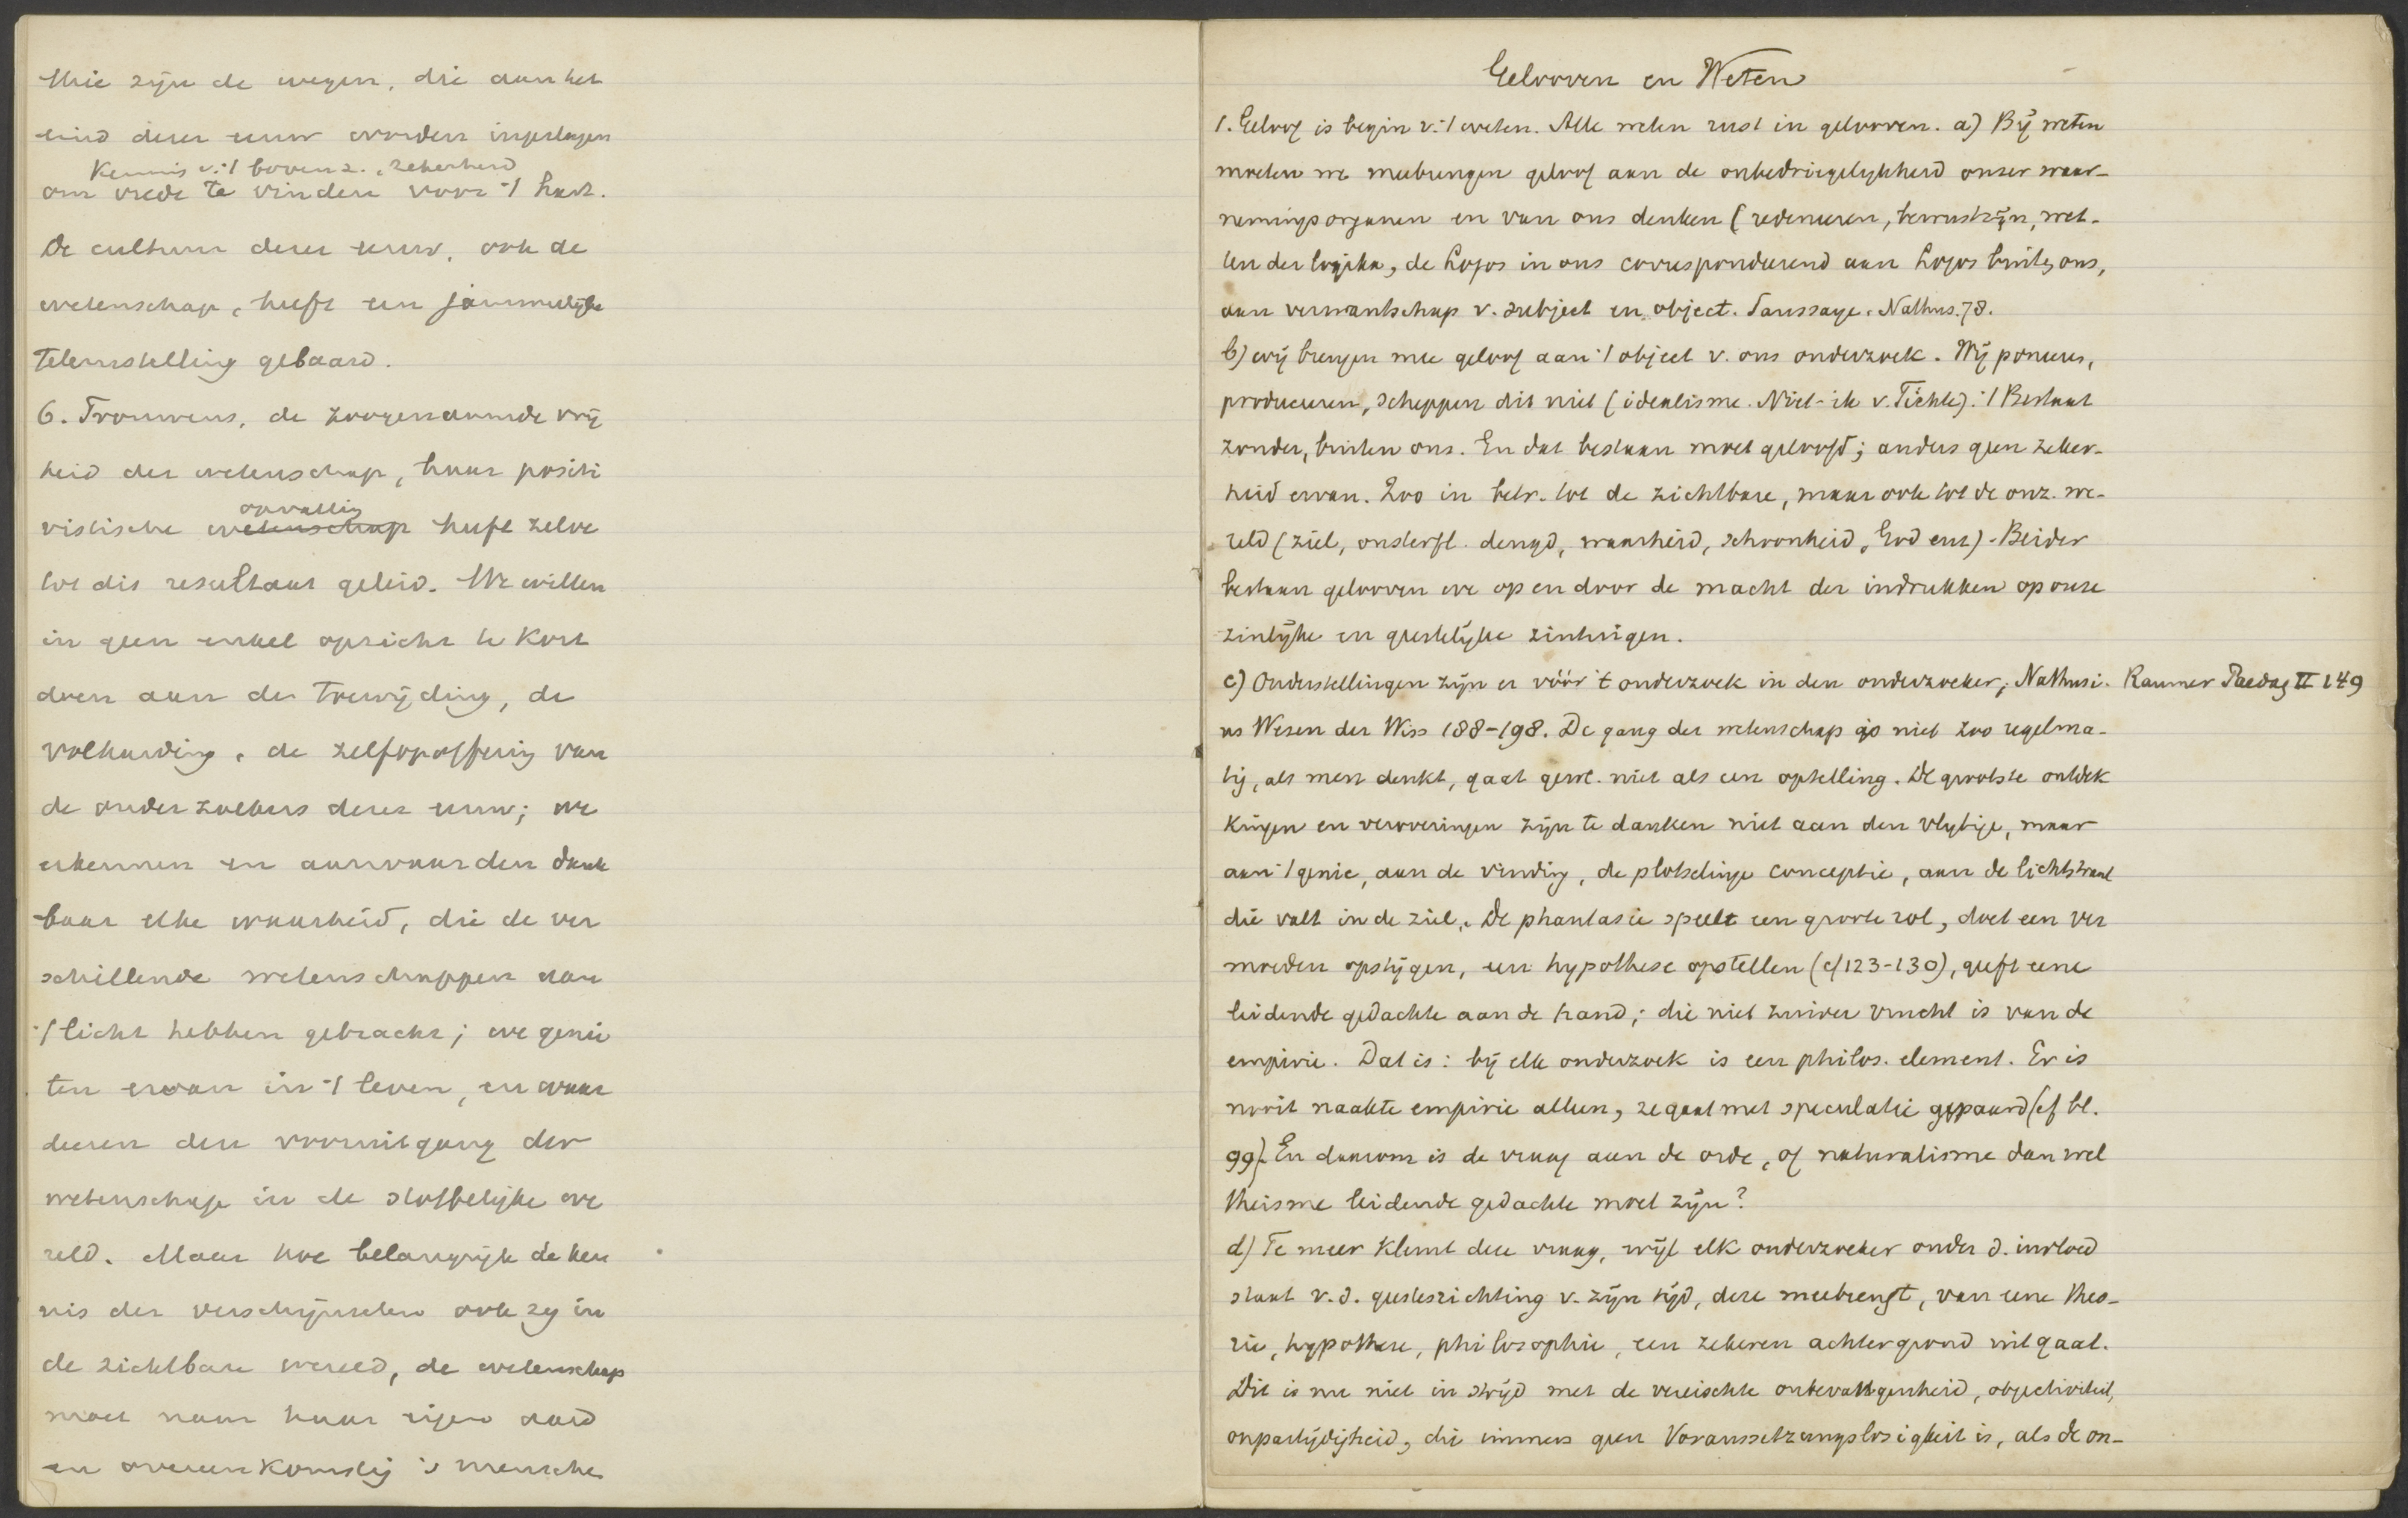 Drie zijn de wegen, die aan het
eind dezer eeuw worden ingeslagen
Kennis v. 't bovenz., zekerheid
om vrede te vinden voor 't hart.
De cultuur dezer eeuw, ook de
wetenschap, heeft een jammerlijke
teleurstelling gebaard.
6. Trouwens, de zoogenaamde vrij
heid der wetenschap, haar positi
opvatting
vistische wetenschap heeft zelve
tot dit resultaat geleid. We willen
in geen enkel opzicht te kort
doen aan de toewijding, de
volharding, de zelfopoffering van
de onderzoekers dezer eeuw; we
erkennen en aanvaarden dank
baar elke waarheid, die de ver
schillende wetenschappen aan
't licht hebben gebracht; we genie
ten ervan in 't leven, en waar
deeren den vooruitgang der
wetenschap in de stoffelijke we
reld. Maar hoe belangrijk de ken
nis der verschijnselen ook zij in
de zichtbare wereld, de wetenschap
moet naar haar eigen aard
en overeenkomstig 's mensche
Gelooven en Weten
1. Geloof is begin v. 't weten. Alle weten rust in gelooven. a) Bij weten
moeten we meebrengen geloof aan de onbedriegelijkheid onzer waar-
nemingsorganen en van ons denken (redeneeren, bewustzijn, wet-
ten der logika, de Logos in ons correspondeerend aan Logos buiten ons,
aan verwantschap v. subject en object. Saussaye. Nathus. 78.
b) wij brengen mee geloof aan 't object v. ons onderzoek. Wij poneeren,
produceeren, scheppen dit niet (idealisme. Niet-ik v. Fichte). 't Bestaat
zonder, buiten ons. En dat bestaan moet geloofd; anders geen zeker-
heid ervan. Zoo in betr. tot de zichtbare, maar ook tot de onz. we-
reld (ziel, onsterfl. deugd, waarheid, schoonheid, God enz). Beider
bestaan gelooven we op en door de macht der indrukken op onze
zinlijke en geestelijke zintuigen.
c) Onderstellingen zijn er vóór 't onderzoek in den onderzoeker, Nathusi- Raumer Paedag II 149
us Wesen der Wiss 188-198. De gang der wetenschap is niet zoo regelma-
tig, als men denkt, gaat gew. niet als een optelling. De grootste ontdek
kingen en veroveringen zijn te danken niet aan den vlijtige, maar
aan 't genie, aan de vinding, de plotselinge conceptie, aan de lichtstraal
die valt in de ziel. De phantasie speelt een groote rol, doet een ver
moeden opstijgen, een hypothese opstellen (cf 123-130), geeft eene
leidende gedachte aan de hand; die niet zuiver vrucht is van de
empirie. Dat is: bij elk onderzoek is een philos. element. Er is
nooit naakte empirie alleen, ze gaat met speculatie gepaard (cf bl.
99). En daarom is de vraag aan de orde, of naturalisme dan wel
theisme leidende gedachte moet zijn?
d) Te meer klemt deze vraag, wijl elk onderzoeker onder d. invloed
staat v. d. geestesrichting v. zijn tijd, deze meebrengt, van eene theo-
rie, hypothese, philosophie, een zekeren achtergrond uitgaat.
Dit is nu niet in strijd met de vereischte onbevangenheid, objectiviteit,
onpartijdigheid, die immers geen Voraussetzungslosigkeit is, als de on-